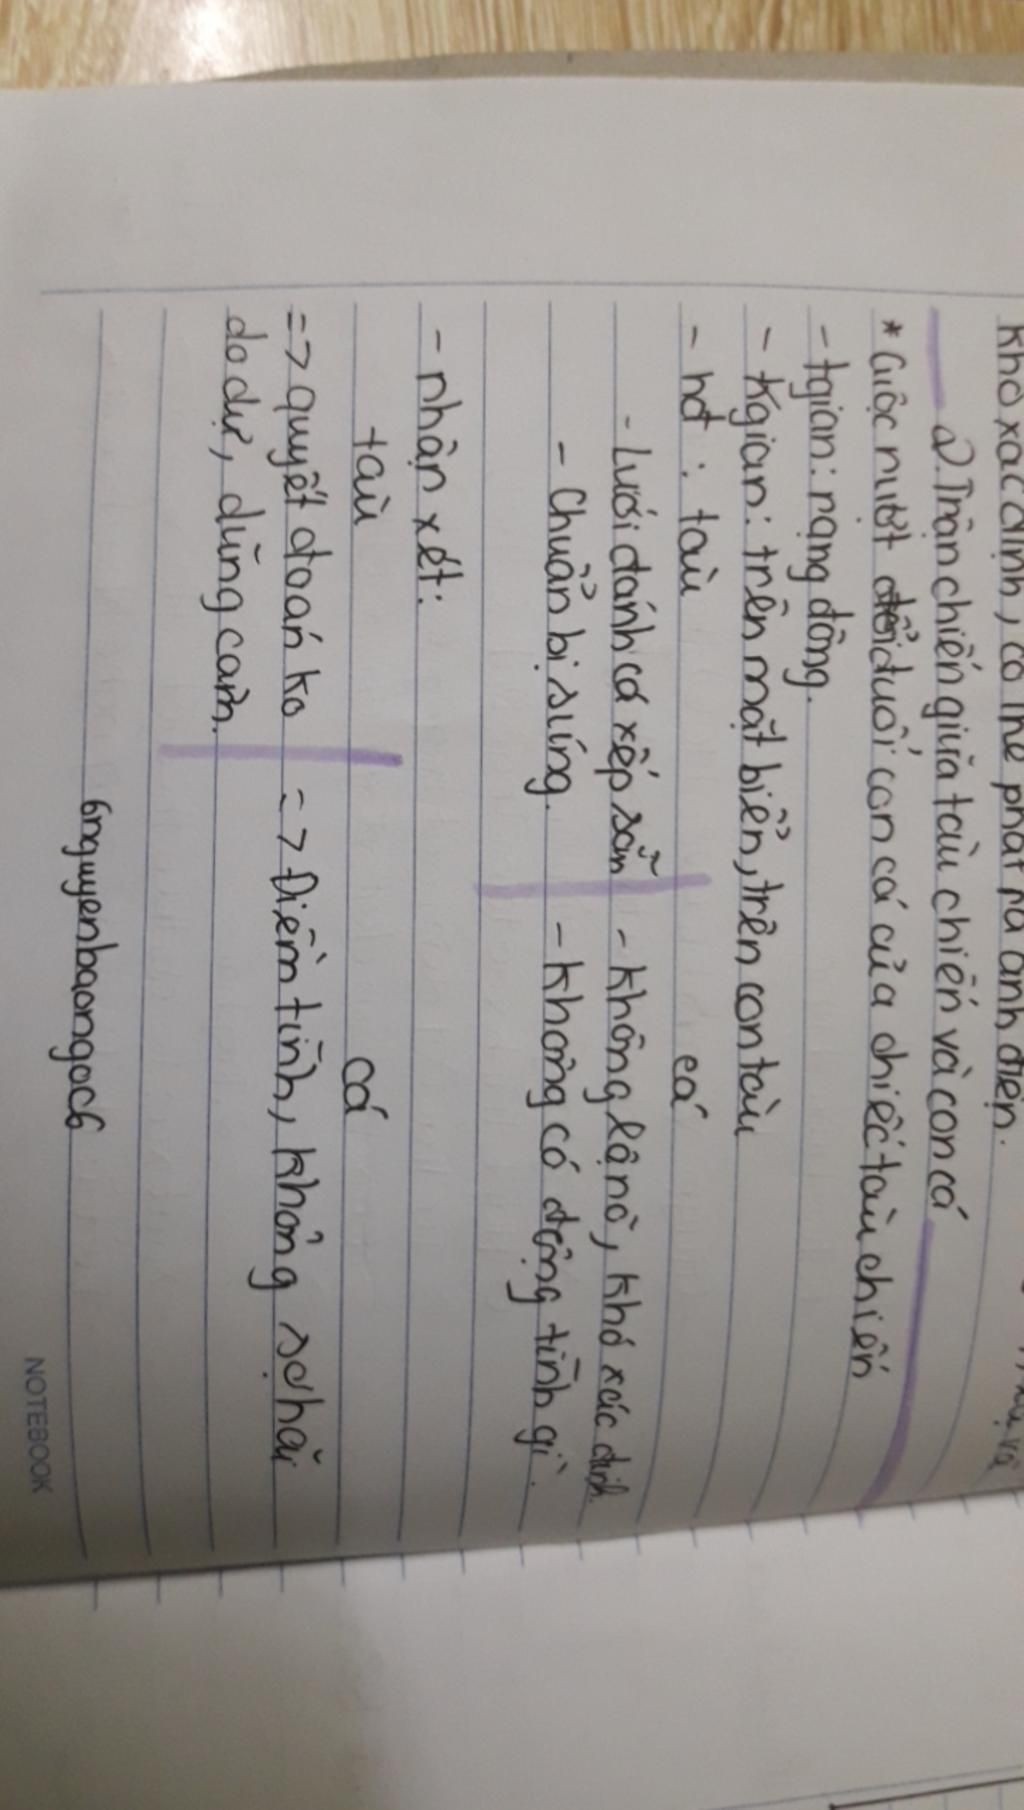 khó xác định, có thể phát ra ánh điện.
a). Trận chiến giữa tàu chiến và con cá
* Cuộc rượt đuổi con cá của chiếc tàu chiến
- tgian: rạng đông.
- Kgian: trên mặt biển, trên con tàu
- hđ: tàu cá
- Lưới đánh cá xếp sẵn - không lộ nò, khó xác định.
- Chuẩn bị súng. - không có động tĩnh gì.
- nhận xét:
tàu cá
=> quyết đoán ko => Điềm tĩnh, không sợ hãi
do dự, dũng cảm.
6nguyenbaongoc6
NOTEBOOK